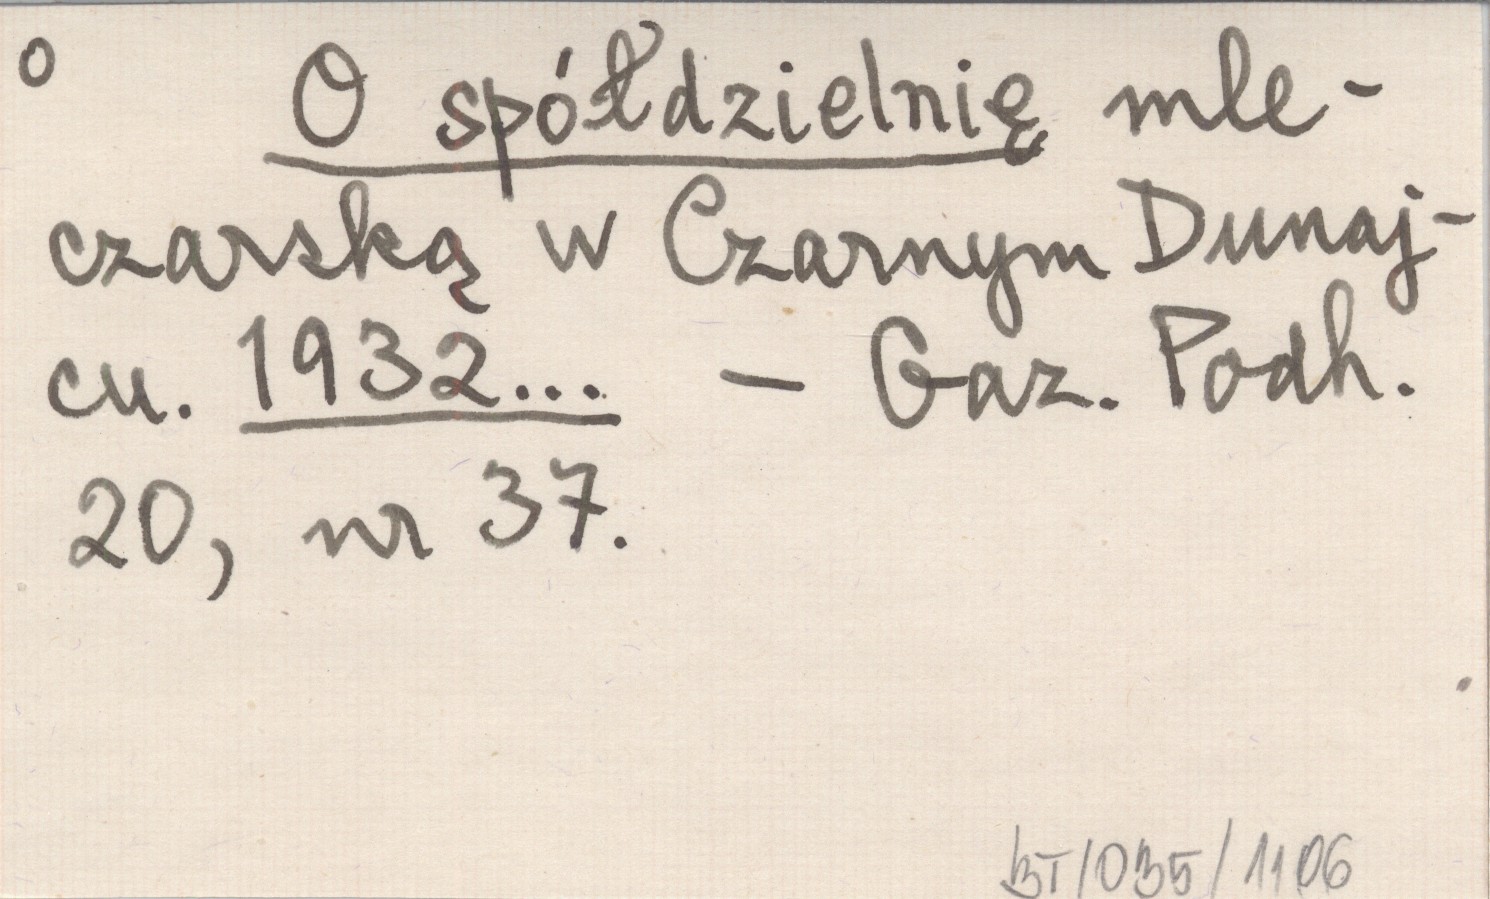 O
O spółdzielnię mle-
czarską w Czarnym Dunaj-
cu. 1932... – Gaz. Podh.
20, nr 37.
BT/035/1106